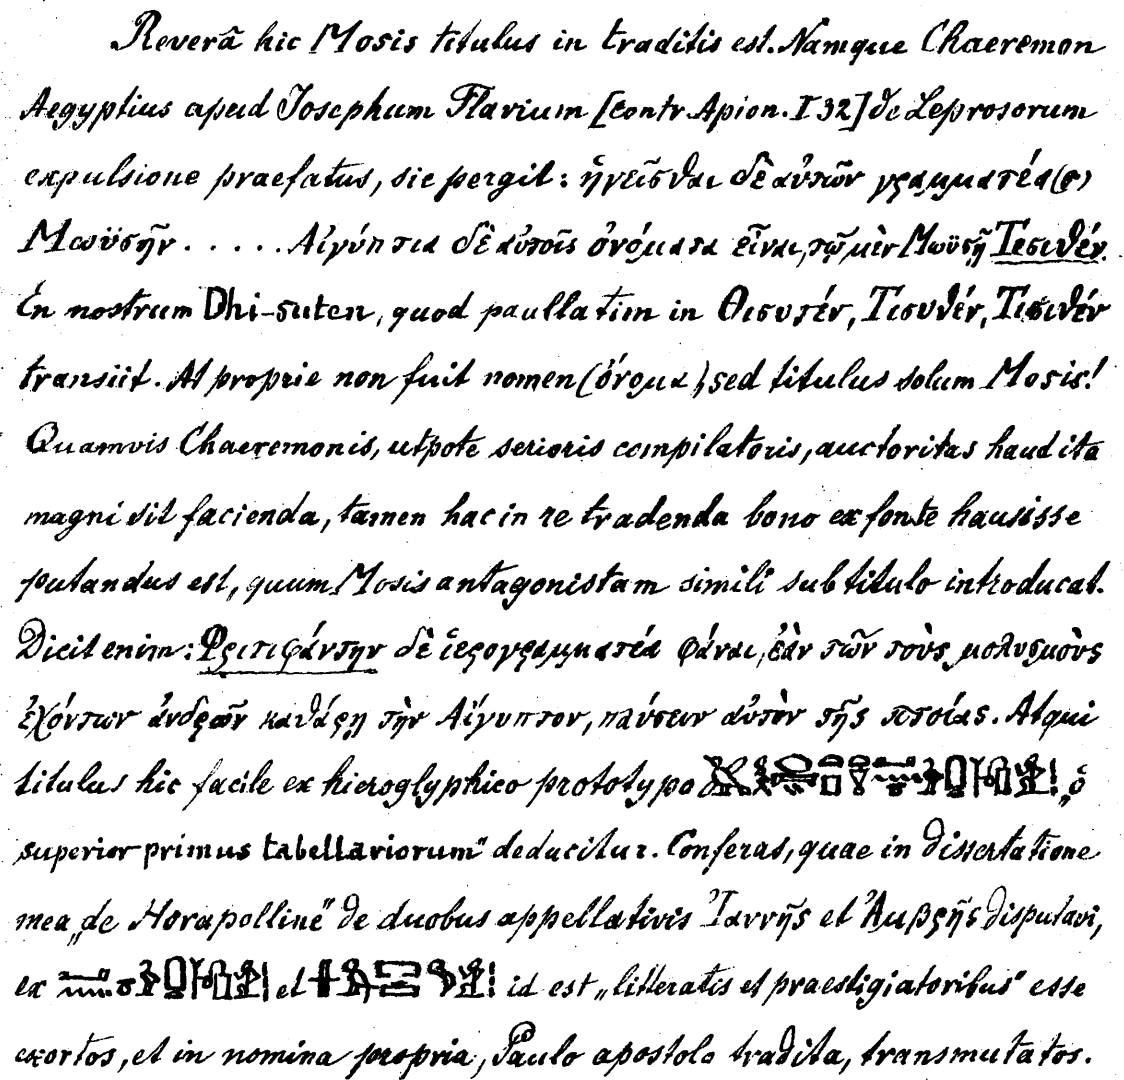 Reverā hic Mosis titulus in traditis est. Namque Chaeremon
Aegyptius apud Josephum Flavium [contr. Apion. I 32] de Leprosorum
expulsione praefatus, sic pergit: ἡγεῖσθαι δὲ αὐτῶν γραμματέα(ς)
Μωϋσῆν ..... Αἰγύπτια δὲ αὐτοῖς ὀνόματα εἶναι, τῷ μὲν Μωϋσῇ Τισιθέν.
En nostrum Dhi-suten, quod paullatim in Θισυτέν, Τισυθέν, Τισιθέν
transiit. At proprie non fuit nomen (ὄνομα) sed titulus solum Mosis!
Quamvis Chaeremonis, utpote serioris compilatoris, auctoritas haud ita
magni sit facienda, tamen hac in re tradenda bono ex fonte hausisse
putandus est, quum Mosis antagonistam simili sub titulo introducat.
Dicit enim: Φριτιφάντην δὲ ἱερογραμματέα φάναι, ἐὰν τῶν τοὺς μολυσμοὺς
ἐχόντων ἀνδρῶν καθάρῃ τὴν Αἴγυπτον, παύσειν αὐτὸν τῆς πτοίας. Atqui
titulus hic facile ex hieroglyphico prototypo „ὁ
superior primus tabellariorum“ deducitur. Conferas, quae in dissertatione
mea „de Horapolline“ de duobus appellativis Ἰαννῆς et Ἀμβρῆς disputavi,
ex et id est „litteratis et praestigiatoribus“ esse
exortos, et in nomina propria, Paulo apostolo tradita, transmutatos.